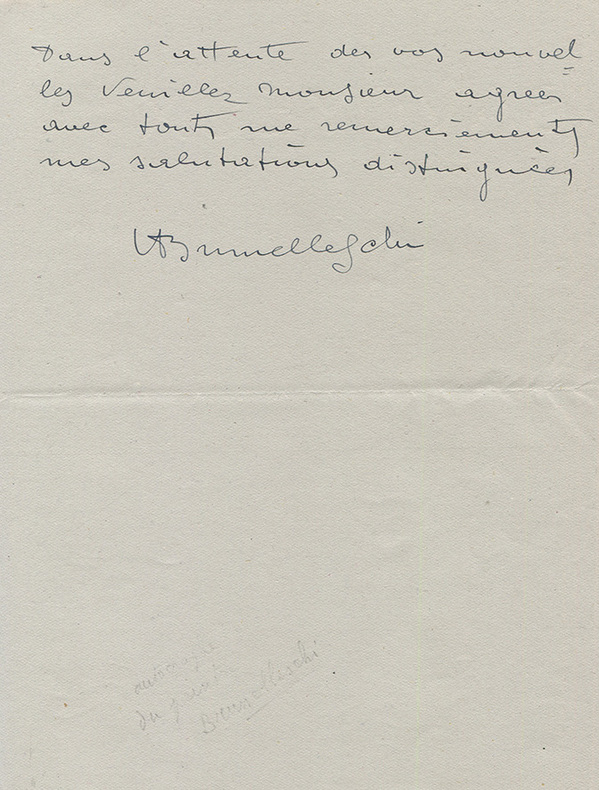 Dans l'attente des vos nouvel=
les Veuillez Monsieur agreer
avec touts me remerciements
mes salutations distinguées
UBrunelleschi
du peintre
Brunelleschi